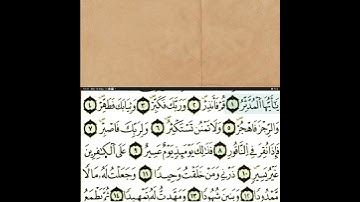 يَٰٓأَيُّهَا ٱلْمُدَّثِّرُ ١ قُمْ فَأَنذِرْ ٢ وَرَبَّكَ فَكَبِّرْ ٣ وَثِيَابَكَ فَطَهِّرْ ٤
وَٱلرُّجْزَ فَٱهْجُرْ ٥ وَلَا تَمْنُن تَسْتَكْثِرُ ٦ وَلِرَبِّكَ فَٱصْبِرْ ٧
فَإِذَا نُقِرَ فِى ٱلنَّاقُورِ ٨ فَذَٰلِكَ يَوْمَئِذٍ يَوْمٌ عَسِيرٌ ٩ عَلَى ٱلْكَٰفِرِينَ
غَيْرُ يَسِيرٍ ١٠ ذَرْنِى وَمَنْ خَلَقْتُ وَحِيدًا ١١ وَجَعَلْتُ لَهُۥ مَالًا
مَّمْدُودًا ١٢ وَبَنِينَ شُهُودًا ١٣ وَمَهَّدتُّ لَهُۥ تَمْهِيدًا ١٤ ثُمَّ يَطْمَعُ